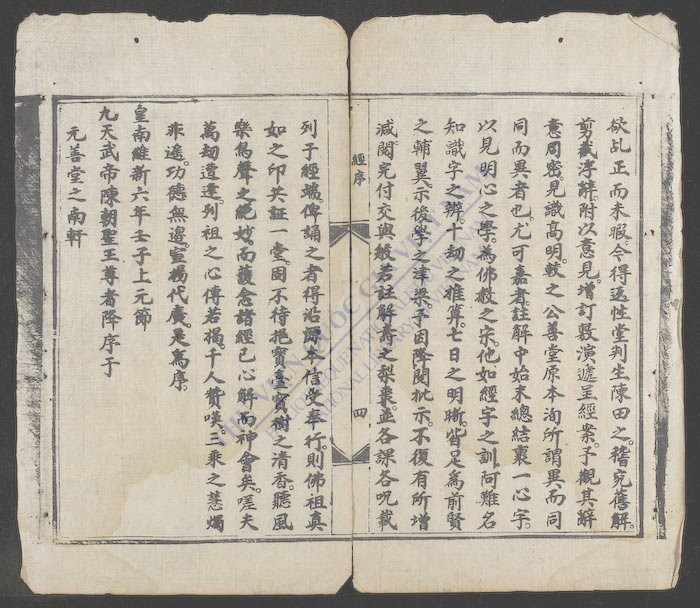 欲乩正而未暇。今得返性堂判生陳田之。稽究舊解。
剪截浮辭。附以意見。增訂敷演。遞呈經案。予觀其辭
意周密。見識高明。較之公善堂原本洵所謂異而同
同而異者也。尤可嘉者。註解中始末總結裹一心字。
以見明心之學。爲佛教之宗。他如經字之訓。阿難名
知識字之辨。十劫之推算。七日之明晰。皆足爲前賢
之輔翼。示後學之津梁。予因降閱批示。不復有所增
減。閱完付交與般若註解壽之梨棗。並各課各咒載
經序
四
列于經端。俾誦之者得沿源本信受奉行。則佛祖真
如之印共証一堂。因不待挹寶壺寶樹之清香。聽風
樂鳥聲之絕妙。而護念諸經已心解而神會矣。嗟夫
萬劫遭逢。列祖之心傳若揭。千人贊嘆。三乘之慧燭
非遙。功德無邊。宣揚代廣。是爲序。
皇南維新六年壬子上元節
九天武帝陳朝聖王尊者降序于
元善堂之南軒
THƯ VIỆN QUỐC GIA VIỆT NAM
BIBLIOTHÈQUE NATIONALE DU VIETNAM
NATIONAL LIBRARY OF VIETNAM